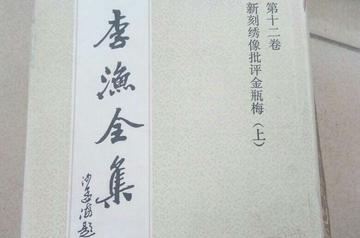 第十二卷
新刻绣像批评金瓶梅（上）
李渔全集
沙孟海题